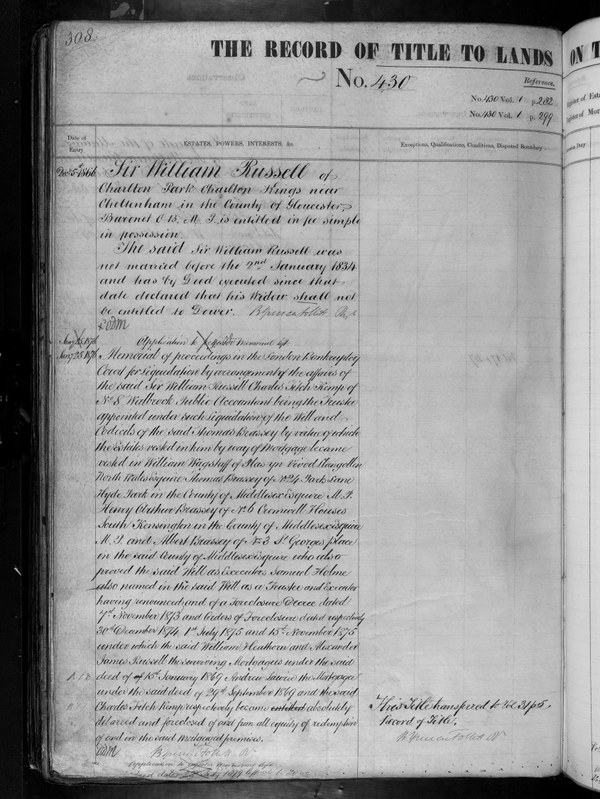 308
THE RECORD OF TITLE TO LANDS
ON T
No. 430
Reference.
No. 430 Vol. 1 p. 282
No. 430 Vol. 1 p. 299
Date of
Entry
ESTATES, POWERS, INTERESTS, &c.
Exceptions, Qualifications, Conditions, Disputed Boundary
Decr 5th 1866 Sir William Russell of
Charlton Park Charlton Kings near
Cheltenham in the County of Gloucester,
Baronet C.B. M.P. is entitled in fee simple
in possession.
The said Sir William Russell was
not married before the 2nd January 1834
and has by Deed executed since that
date declared that his Widow shall not
be entitled to Dower.
Application to Register Memorial left
Jany 25 1876 Memorial of proceedings in the London Bankruptcy
Court for Liquidation by arrangement of the affairs of
the said Sir William Russell Charles Fitch Kemp of
No. 8 Walbrook Public Accountant being the Trustee
appointed under such Liquidation of the Will and
Codicils of the said Thomas Brassey by value of which
the Estates vested in him by way of Mortgage became
vested in William Wagstaff of Plas yn Vivod Llangollen
North Wales Esquire Thomas Brassey of No. 24 Park Lane
Hyde Park in the County of Middlesex Esquire M.P.
Henry Arthur Brassey of No. 6 Cromwell Houses
South Kensington in the County of Middlesex Esquire
M.P. and Albert Brassey of No. 3 St. Georges place
in the said County of Middlesex Esquire who also
proved the said Will as Executors Samuel Holme
also named in the said Will as a Trustee and Executor
having renounced and of a Foreclosure Decree dated
7th November 1873 and Orders of Foreclosure dated respectively
30th December 1874, 1st July 1875 and 15th November 1875
under which the said William Heathorn and Alexander
James Russell the surviving Mortgagees under the said
deed of 15th January 1869 Andrew Lawrie the Mortgagee
under the said deed of 29th September 1869 and the said
Charles Fitch Kemp respectively became entitled absolutely
debarred and foreclosed of and from all equity of redemption
of and in the said Mortgaged premises.
This Title transferred to Vol 31 p 5
Record of Title.